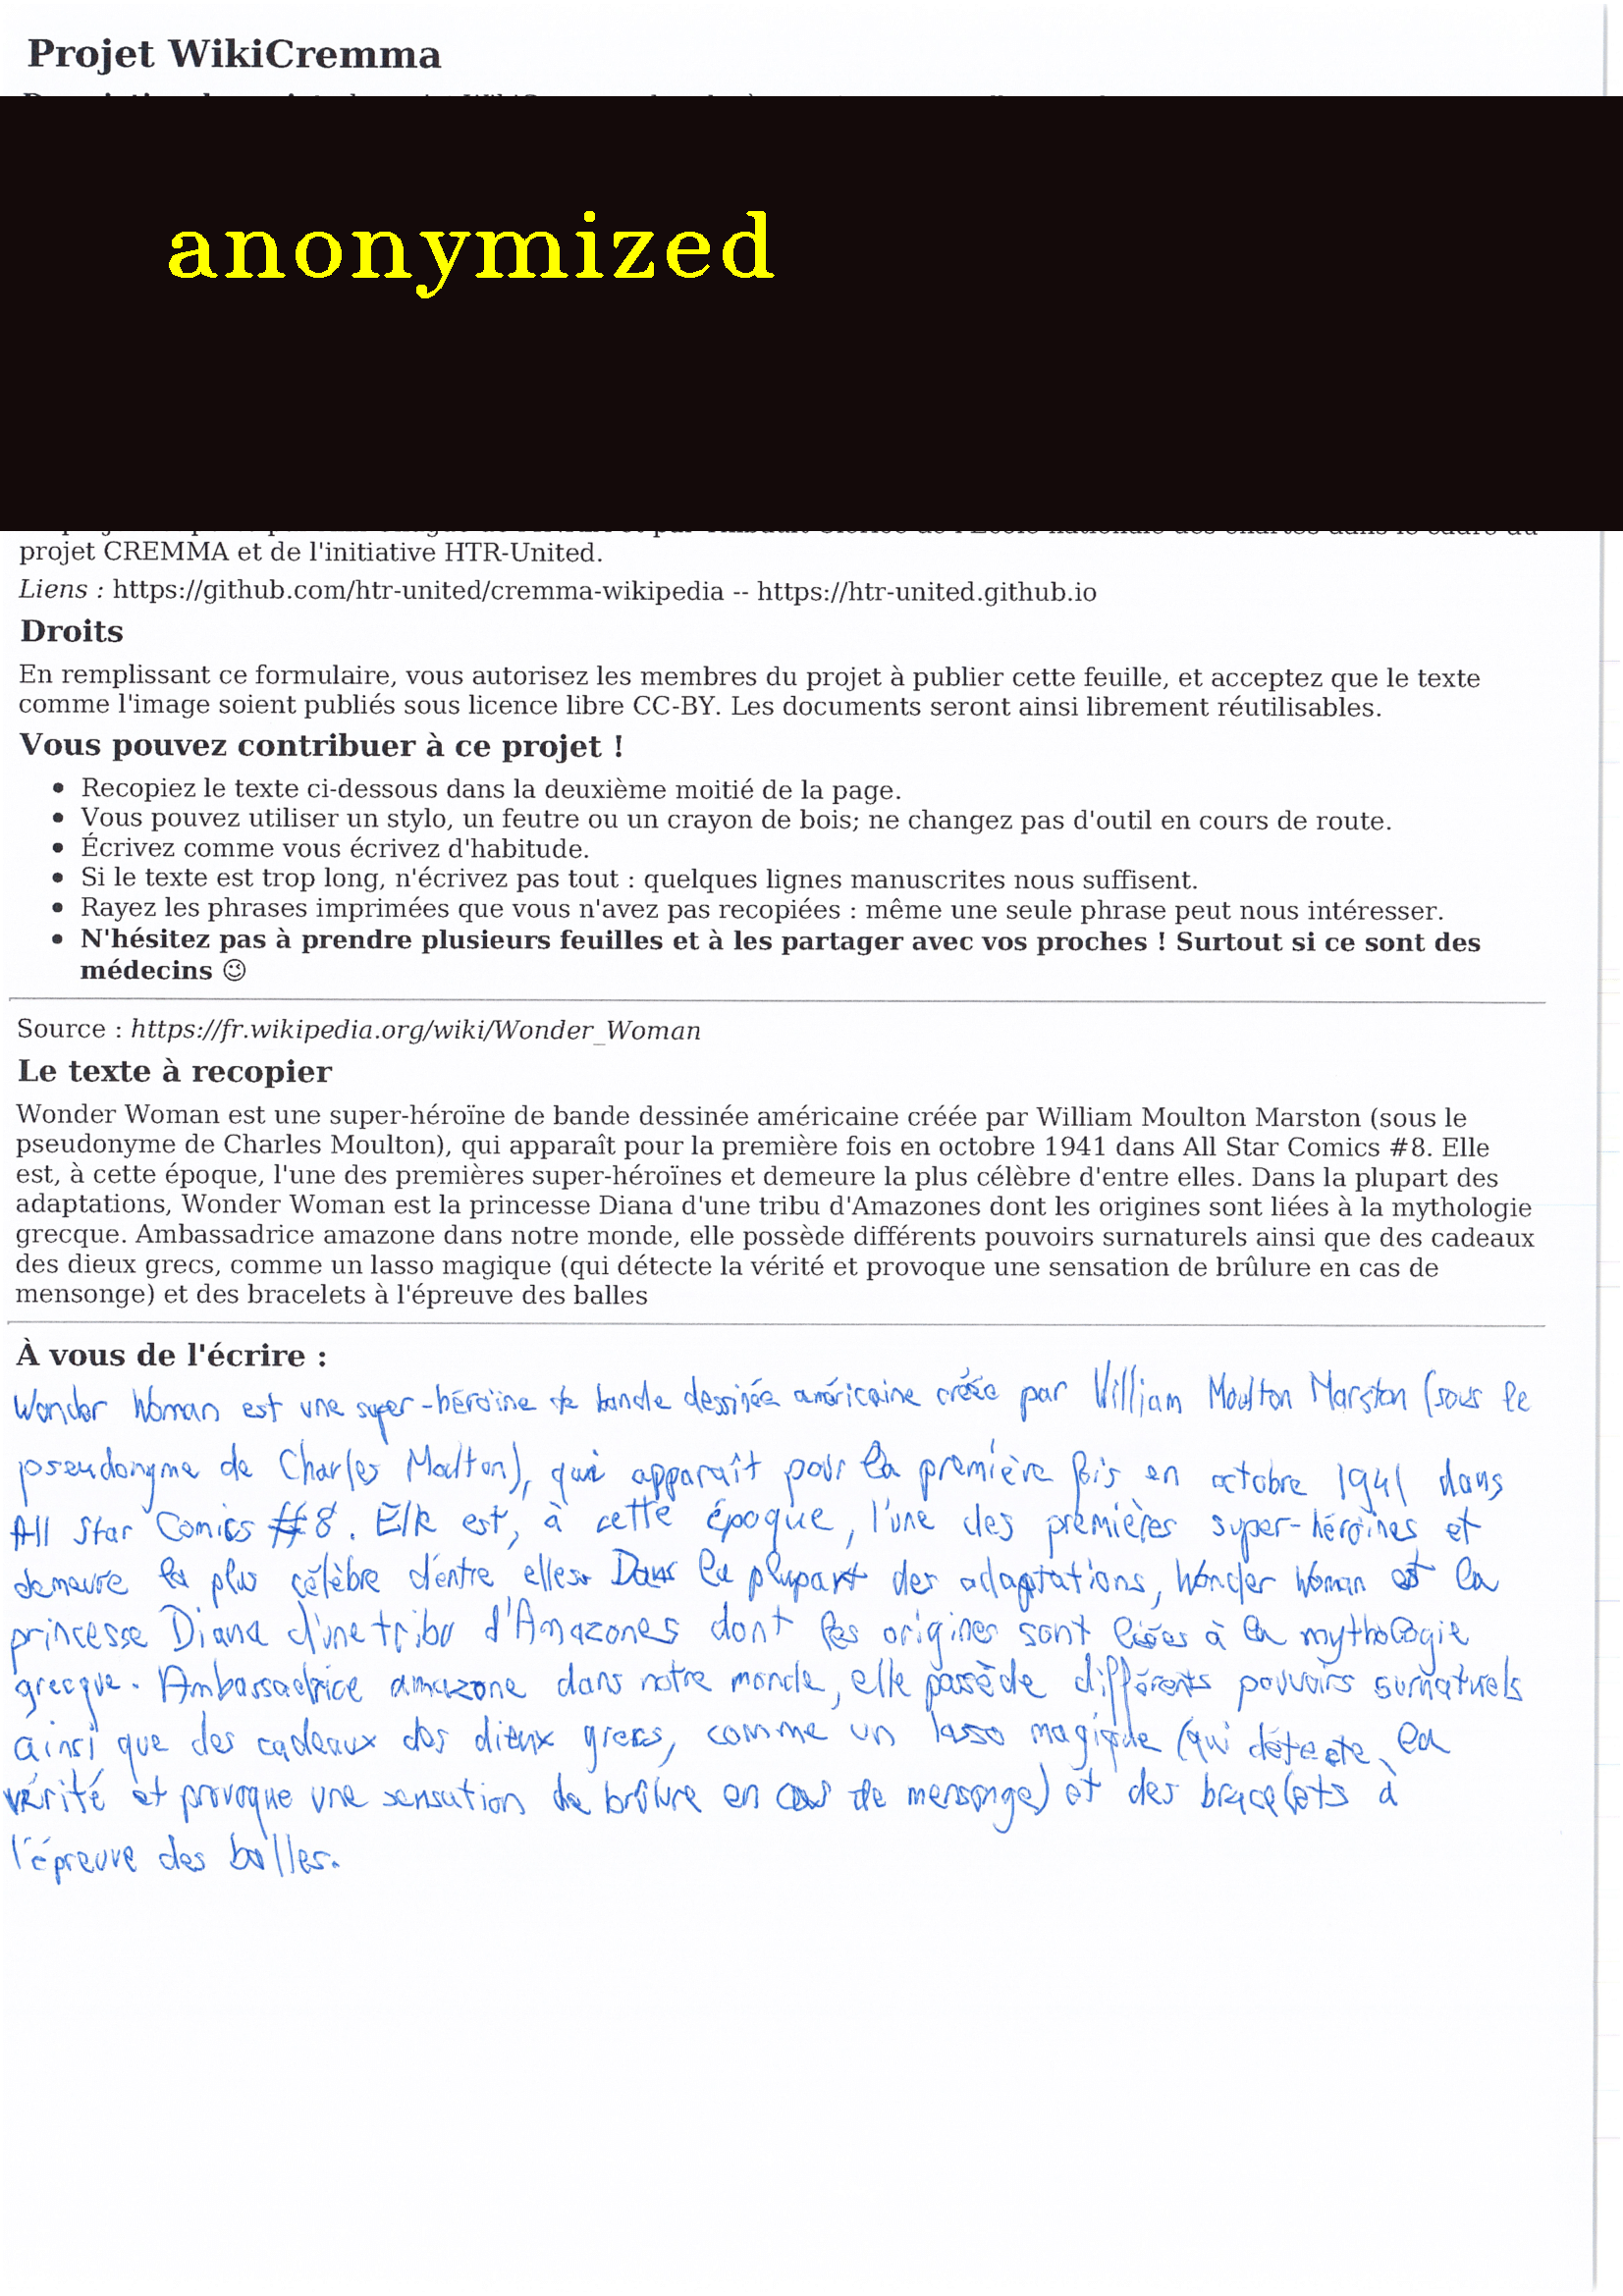 Projet WikiCremma
anonymized
projet CREMMA et de l'initiative HTR-United.
Liens : https://github.com/htr-united/cremma-wikipedia -- https://htr-united.github.io
Droits
En remplissant ce formulaire, vous autorisez les membres du projet à publier cette feuille, et acceptez que le texte
comme l'image soient publiés sous licence libre CC-BY. Les documents seront ainsi librement réutilisables.
Vous pouvez contribuer à ce projet !
• Recopiez le texte ci-dessous dans la deuxième moitié de la page.
• Vous pouvez utiliser un stylo, un feutre ou un crayon de bois; ne changez pas d'outil en cours de route.
• Écrivez comme vous écrivez d'habitude.
• Si le texte est trop long, n'écrivez pas tout : quelques lignes manuscrites nous suffisent.
• Rayez les phrases imprimées que vous n'avez pas recopiées : même une seule phrase peut nous intéresser.
• N'hésitez pas à prendre plusieurs feuilles et à les partager avec vos proches ! Surtout si ce sont des
médecins 😉
Source : https://fr.wikipedia.org/wiki/Wonder_Woman
Le texte à recopier
Wonder Woman est une super-héroïne de bande dessinée américaine créée par William Moulton Marston (sous le
pseudonyme de Charles Moulton), qui apparaît pour la première fois en octobre 1941 dans All Star Comics #8. Elle
est, à cette époque, l'une des premières super-héroïnes et demeure la plus célèbre d'entre elles. Dans la plupart des
adaptations, Wonder Woman est la princesse Diana d'une tribu d'Amazones dont les origines sont liées à la mythologie
grecque. Ambassadrice amazone dans notre monde, elle possède différents pouvoirs surnaturels ainsi que des cadeaux
des dieux grecs, comme un lasso magique (qui détecte la vérité et provoque une sensation de brûlure en cas de
mensonge) et des bracelets à l'épreuve des balles
À vous de l'écrire :
Wonder Woman est une super-héroïne de bande dessinée américaine créée par William Moulton Marston (sous le
pseudonyme de Charles Moulton), qui apparaît pour la première fois en octobre 1941 dans
All Star Comics #8. Elle est, à cette époque, l'une des premières super-héroïnes et
demeure la plus célèbre d'entre elles. Dans la plupart des adaptations, Wonder Woman est la
princesse Diana d'une tribu d'Amazones dont les origines sont liées à la mythologie
grecque. Ambassadrice amazone dans notre monde, elle possède différents pouvoirs surnaturels
ainsi que des cadeaux des dieux grecs, comme un lasso magique (qui détecte la
vérité et provoque une sensation de brûlure en cas de mensonge) et des bracelets à
l'épreuve des balles.